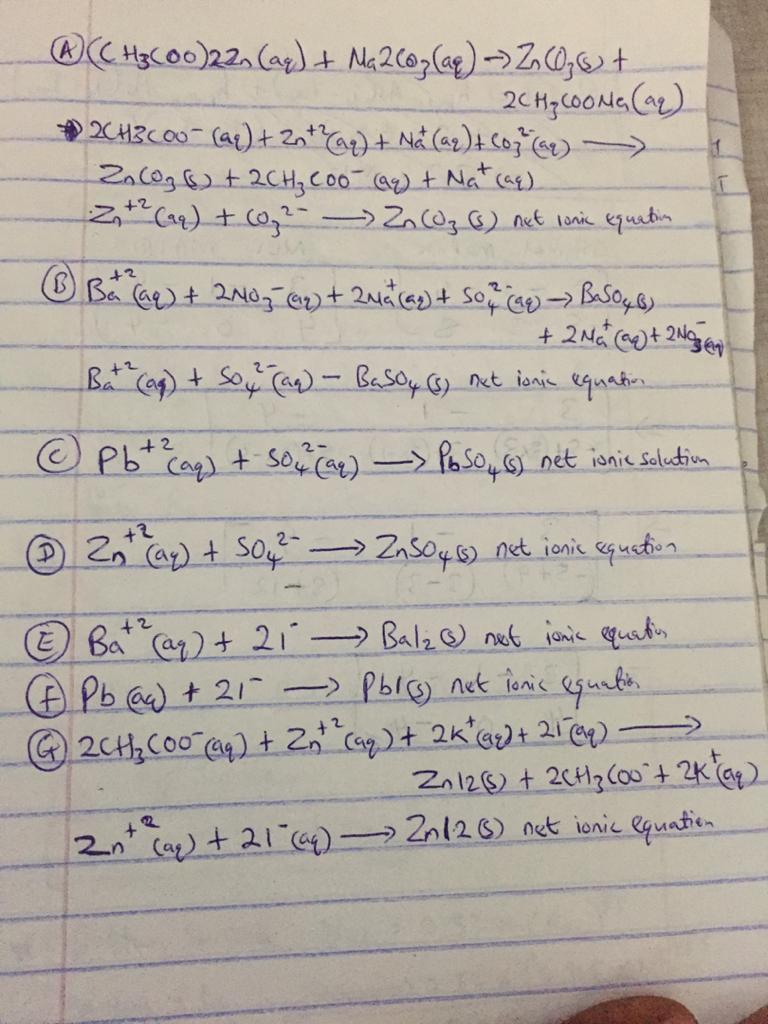 Ⓐ (CH3COO)2Zn(aq) + Na2CO3(aq) → ZnCO3(s) +
2CH3COONa(aq)
2CH3COO⁻(aq) + Zn⁺²(aq) + Na⁺(aq) + CO3²⁻(aq) →
ZnCO3(s) + 2CH3COO⁻(aq) + Na⁺(aq)
Zn⁺²(aq) + CO3²⁻ → ZnCO3(s) net ionic equation
Ⓑ Ba⁺²(aq) + 2NO3⁻(aq) + 2Na⁺(aq) + SO4²⁻(aq) → BaSO4(s)
+ 2Na⁺(aq) + 2NO3⁻(aq)
Ba⁺²(aq) + SO4²⁻(aq) – BaSO4(s) net ionic equation
Ⓒ Pb⁺²(aq) + SO4²⁻(aq) → PbSO4(s) net ionic solution
Ⓓ Zn⁺²(aq) + SO4²⁻ → ZnSO4(s) net ionic equation
Ⓔ Ba⁺²(aq) + 2I⁻ → BaI2(s) net ionic equation
Ⓕ Pb(aq) + 2I⁻ → PbI(s) net ionic equation
Ⓖ 2CH3COO⁻(aq) + Zn⁺²(aq) + 2K⁺(aq) + 2I⁻(aq) →
ZnI2(s) + 2CH3COO⁻ + 2K⁺(aq)
Zn⁺²(aq) + 2I⁻(aq) → ZnI2(s) net ionic equation